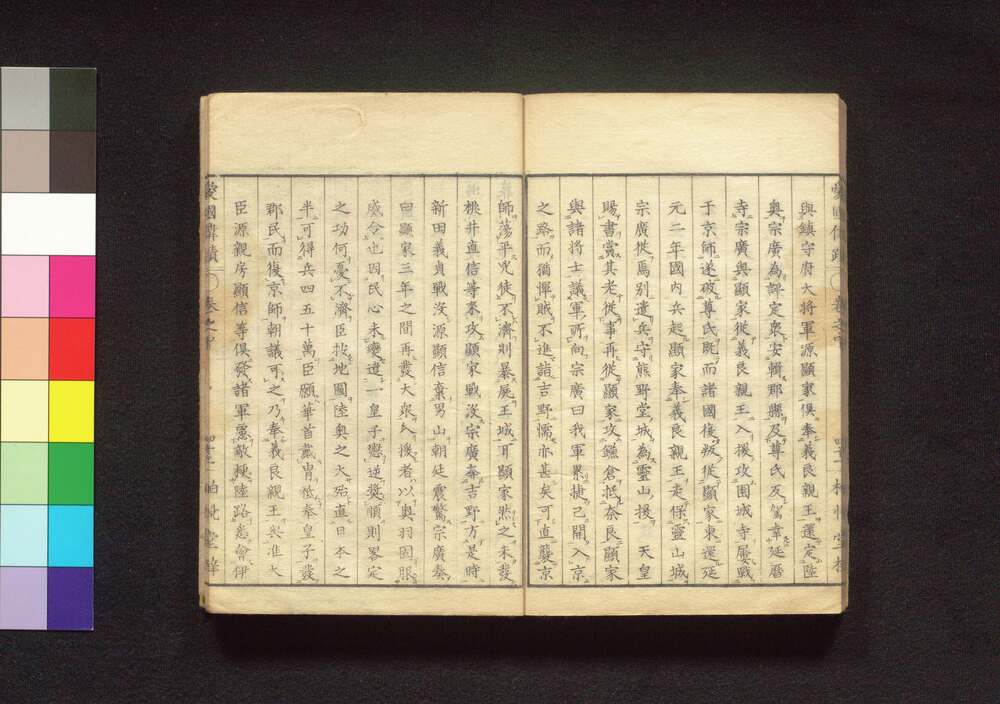 與鎮守府大將軍源顯家俱奉義良親王還定陸
奥宗廣為評定衆安輯郡縣及尊氏反駕幸延曆
寺宗廣與顯家從義良親王入援攻園城寺屢戰
于京師遂破尊氏既而諸國復叛從顯家東還延
元二年國内兵起顯家奉義良親王走保靈山城
宗廣從焉別遣兵守熊野堂城為靈山援 天皇
賜書賞其老從事再從顯家攻鎌倉抵奈良顯家
與諸將士議軍所向宗廣曰我軍累捷已開入京
之路而猶憚賊不進詣吉野懦亦甚矣可直襲京
師蕩平兇徒不濟則暴屍王城耳顯家然之未發
桃井直信等來攻顯家戰没宗廣奔吉野方是時
新田義貞戰没源顯信棄男山朝廷震驚宗廣奏
曰顯家三年之間再發大衆入援者以奥羽固服
威令也因民心未變遣一皇子懲逆奬順則畧定
之功何憂不濟臣按地圖陸奥之大殆直日本之
半可得兵四五十萬臣願華首戴冑推奉皇子發
郡民而復京師朝議可之乃奉義良親王與准大
臣源親房顯信等俱發諸軍慮敵梗陸路悉會伊
愛國偉蹟 卷之中 柏悅堂梓